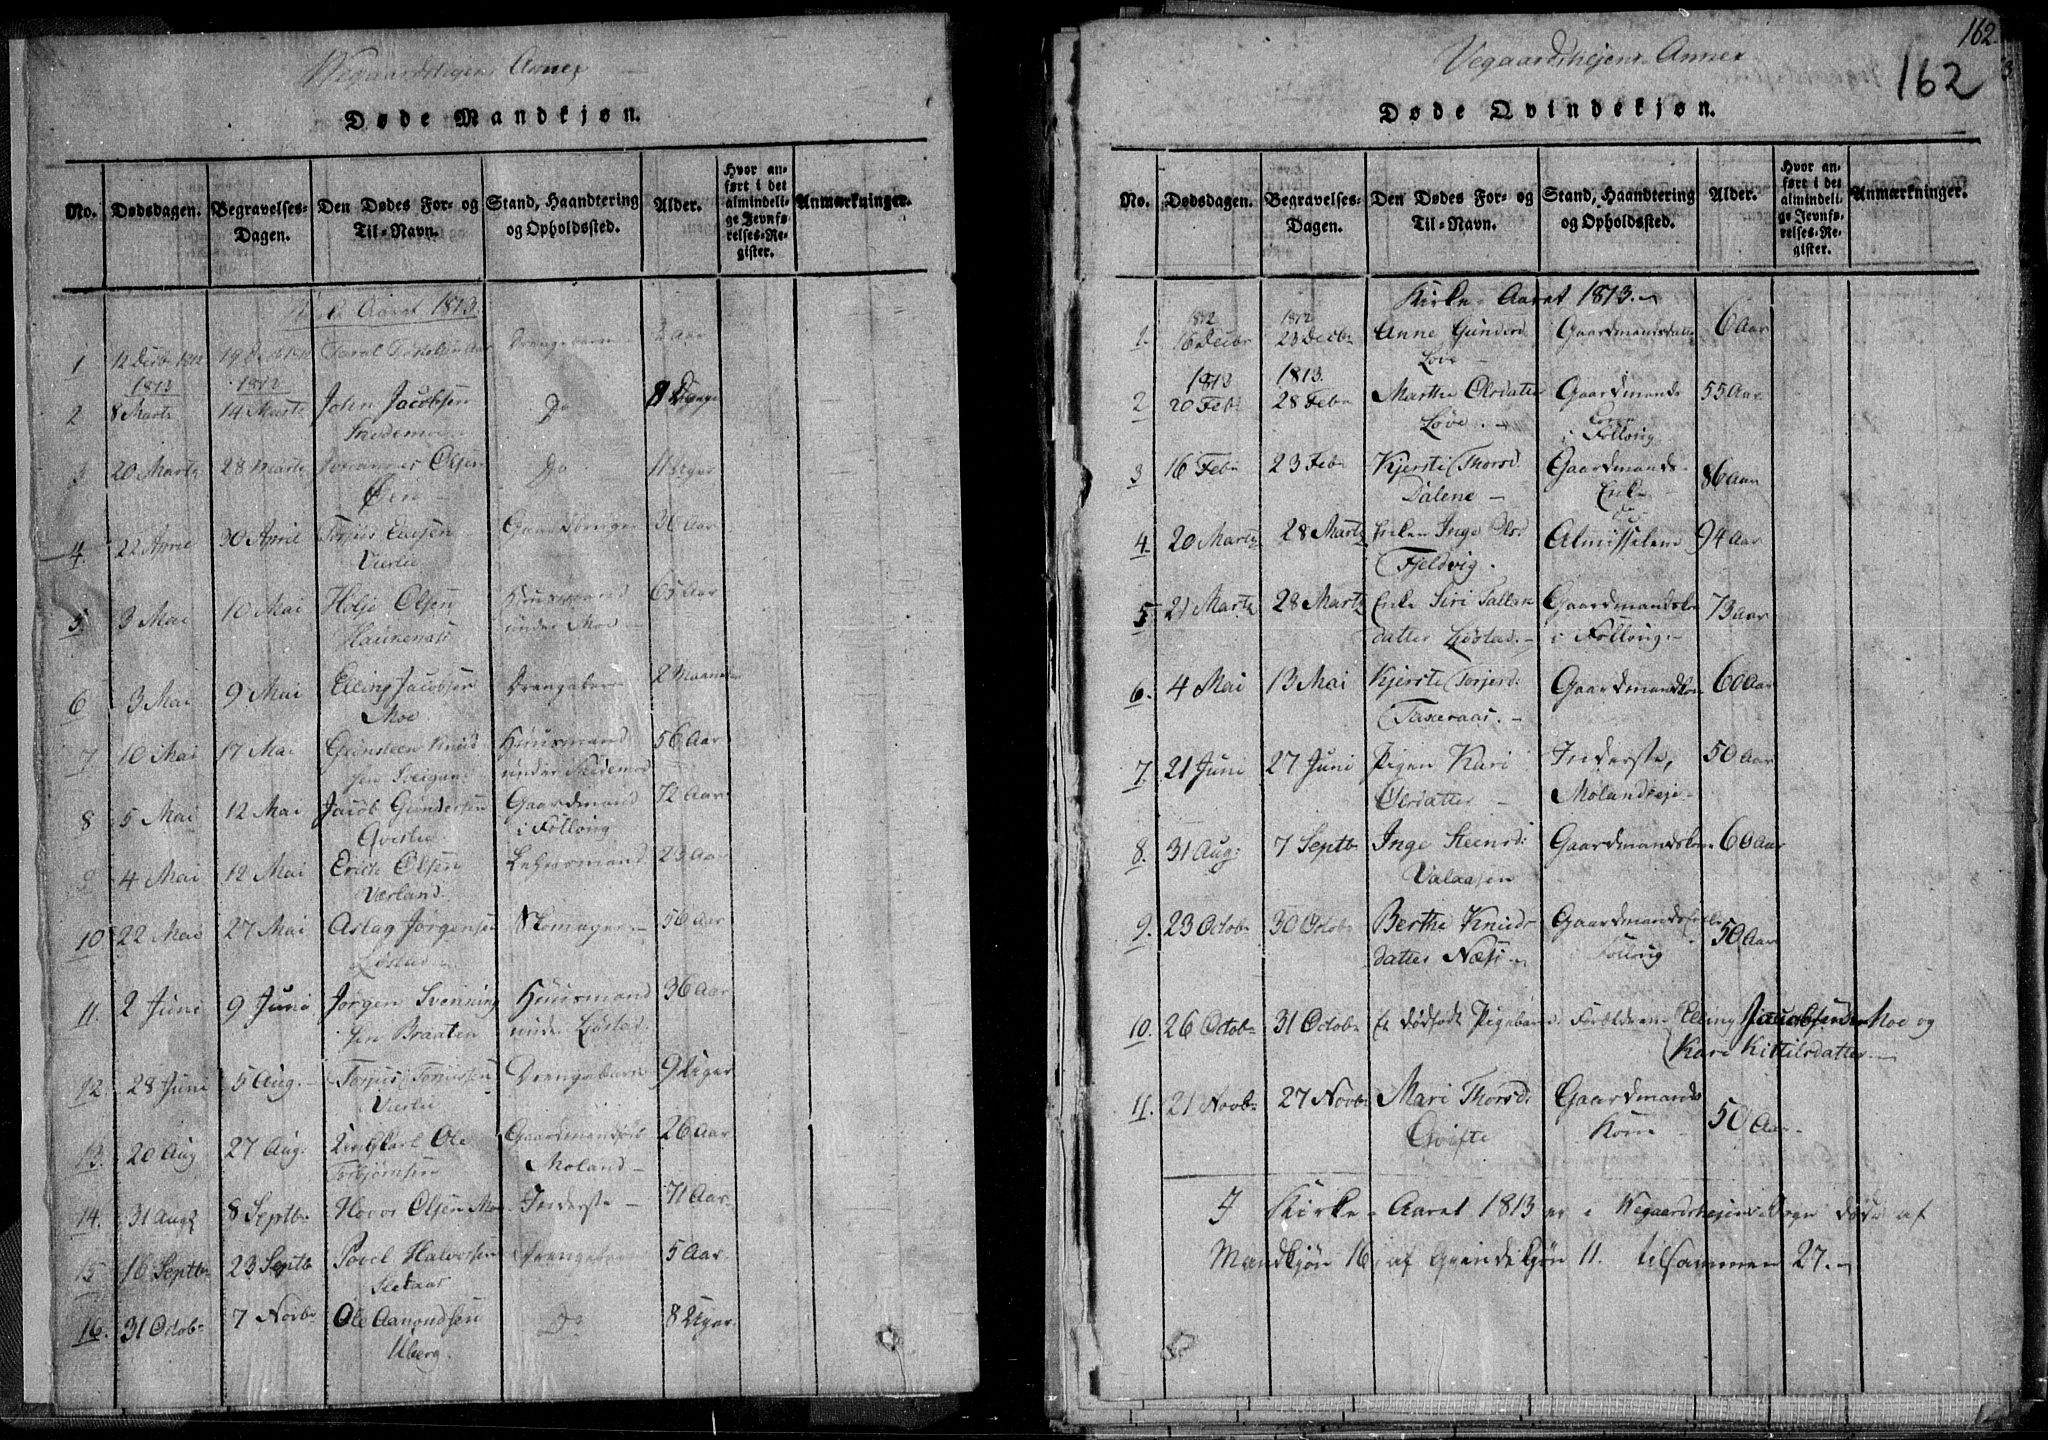 Vegaardsheiens Annex
Døde Mandkjøn.
No. Dødsdagen. Begravelses-Dagen. Den Dødes For- og Til-Navn. Stand, Haandtering og Opholdssted. Alder. Hvor anført i det almindelige Jevnførelses-Register. Anmærkninger.
Kirke Aaret 1813.
1 12 Decbr 1812 19 Decbr 1812 Drengebarn 2 Aar
1813 1813
2 8 Marts 14 Marts John Jacobsen Do 8 Dage
Skidemoe
3 20 Marts 28 Marts Johannes Olsen Do 11 Uger
4. 22 April 30 April Torjus 30 Aar
Vierlie
5. 3 Mai 10 Mai Holje Olsen Huusmand 65 Aar
under Moe
6 3 Mai 9 Mai Elling Jacobsen Drengebarn 2 Maaneder
Moe.
7 10 Mai 17 Mai Gunsteen Knud Huusmand 56 Aar
sen under Skidemoe
8 5 Mai 12 Mai Jacob Gundersen Gaardmand 72 Aar
Qvistie i Follvig
9 4 Mai 12 Mai Erich Olsen 23 Aar
Værland.
10 22 Mai 27 Mai Aslag Jørgensen Skomager 50 Aar
Løstad
11. 2 Juni 9 Juni Jørgen Svenning Huusmand 36 Aar
sen Braaten under Løstad.
12. 28 Juni 5 Aug. Torjus Torjussen Drengebarn 9 Uger
Vierlie
13. 20 Aug 27 Aug. Ungkarl Ole 26 Aar
Torbjørnsen Moland
14. 31 Aug 8 Septbr Hovor Olsen Moe Inderste 71 Aar.
15 16 Septbr 23 Septb Povel Halvorsen Drengebarn 5 Aar.
16. 31 Octobr 7 Novbr Ole Aamondsen Do 8 Uger.
Uberg.
162.
Vegaardsheiens Annex
162
Døde Qvindekjøn.
No. Dødsdagen. Begravelses-Dagen. Den Dødes For- og Til-Navn. Stand, Haandtering og Opholdssted. Alder. Hvor anført i det almindelige Jevnførelses-Register. Anmærkninger.
Kirke-Aaret 1813.
1812 1812
1. 16 Decbr 23 Decbr Anne Gundersd Gaardmandsdatter 6 Aar
Løve
1813 1813.
2 20 Febr 28 Febr Marthe Olsdatter Gaardmands 55 Aar
Løve. Kone
i Follvig
3 16 Febr 23 Febr Kjersti Thorsd. Gaardmands- 86 Aar
Dalene Enke
4. 20 Marts 28 Marts Enken Inge Olsd Almisselem 94 Aar
Fjeldvig.
5 21 Marts 28 Marts Enke Siri Tallak Gaardmandskone 73 Aar
datter Løstad. i Follvig.
6. 4 Mai 13 Mai Kjersti Torjersd: Gaardmandskone 60 Aar
Taxeraas.
7. 21 Juni 27 Juni Pigen Kari Inderste, 50 Aar
Olsdatter Molandseje
8. 31 Aug: 7 Septbr Inge Steensd: Gaardmandskone 60 Aar
Valaasen
9. 23 Octobr 30 Octobr Berthe Knuds Gaardmands 50 Aar
datter Næss i Follvig
10. 26 Octobr 31 Octobr Et dødfødt Pigebarn. Forældrene Elling Jacobsen Moe og
Kari Kittilsdatter
11. 21 Novbr 27 Novbr Mari Thorsd: Gaardmands 50 Aar
Qviste Kone
I Kirke-Aaret 1813 er i Wegaardsheiens Sogn døde af
Mandkjøn 16, af Qvindekjøn 11. tilsammen 27.